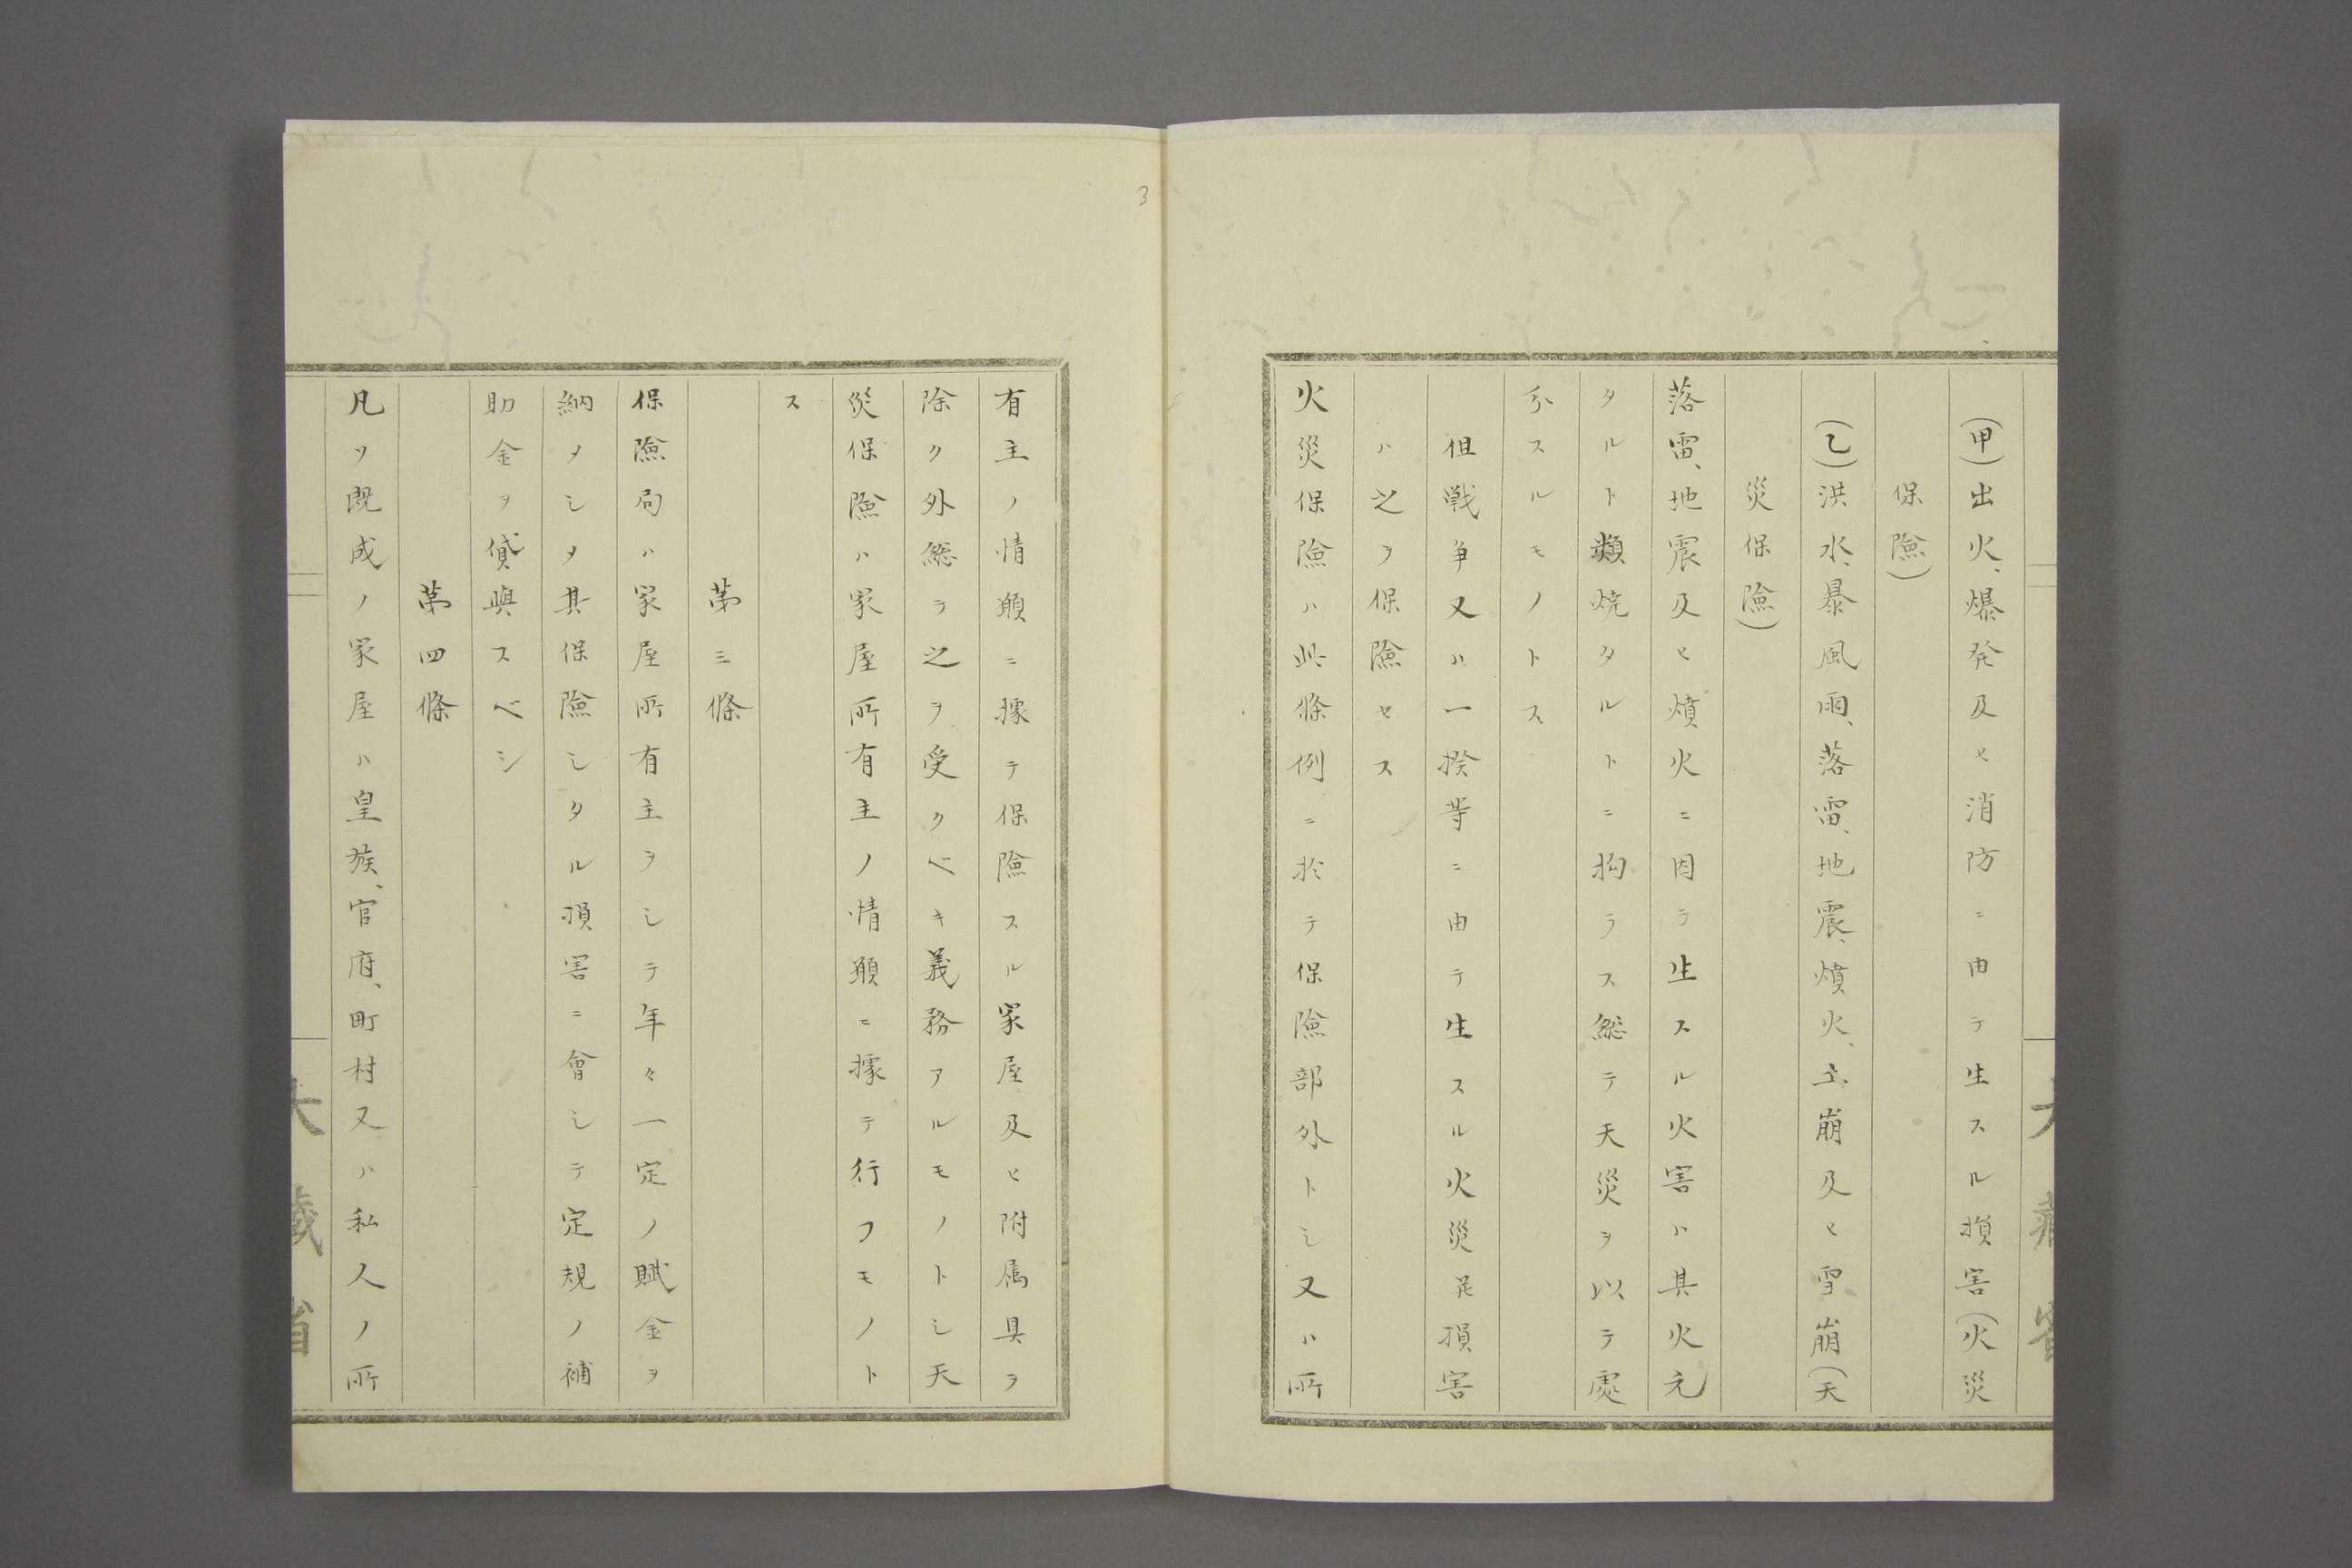 (甲)出火、爆発及ヒ消防ニ由テ生スル損害(火災
保險)
(乙)洪水、暴風雨、落雷、地震、墳火、土崩及ヒ雪崩(天
災保險)
落雷、地震及ヒ墳火ニ因テ生スル火害ハ其火元
タルト類焼タルトニ拘ラス総テ天災ヲ以テ處
分スルモノトス
但戦争又ハ一揆等ニ由テ生スル火災ノ損害
ハ之ヲ保險セス
火災保險ハ此條例ニ於テ保險部外トシ又ハ所
3
有主ノ情願ニ據テ保險スル家屋及ヒ附属具ヲ
除ク外総テ之ヲ受クベキ義務アルモノトシ天
災保險ハ家屋所有主ノ情願ニ據テ行フモノト
ス
第三條
保險局ハ家屋所有主ヲシテ年々一定ノ賦金ヲ
納メシメ其保險シタル損害ニ會シテ定規ノ補
助金ヲ貸與スベシ
第四條
凡ソ既成ノ家屋ハ皇族、官府、町村又ハ私人ノ所
大藏省